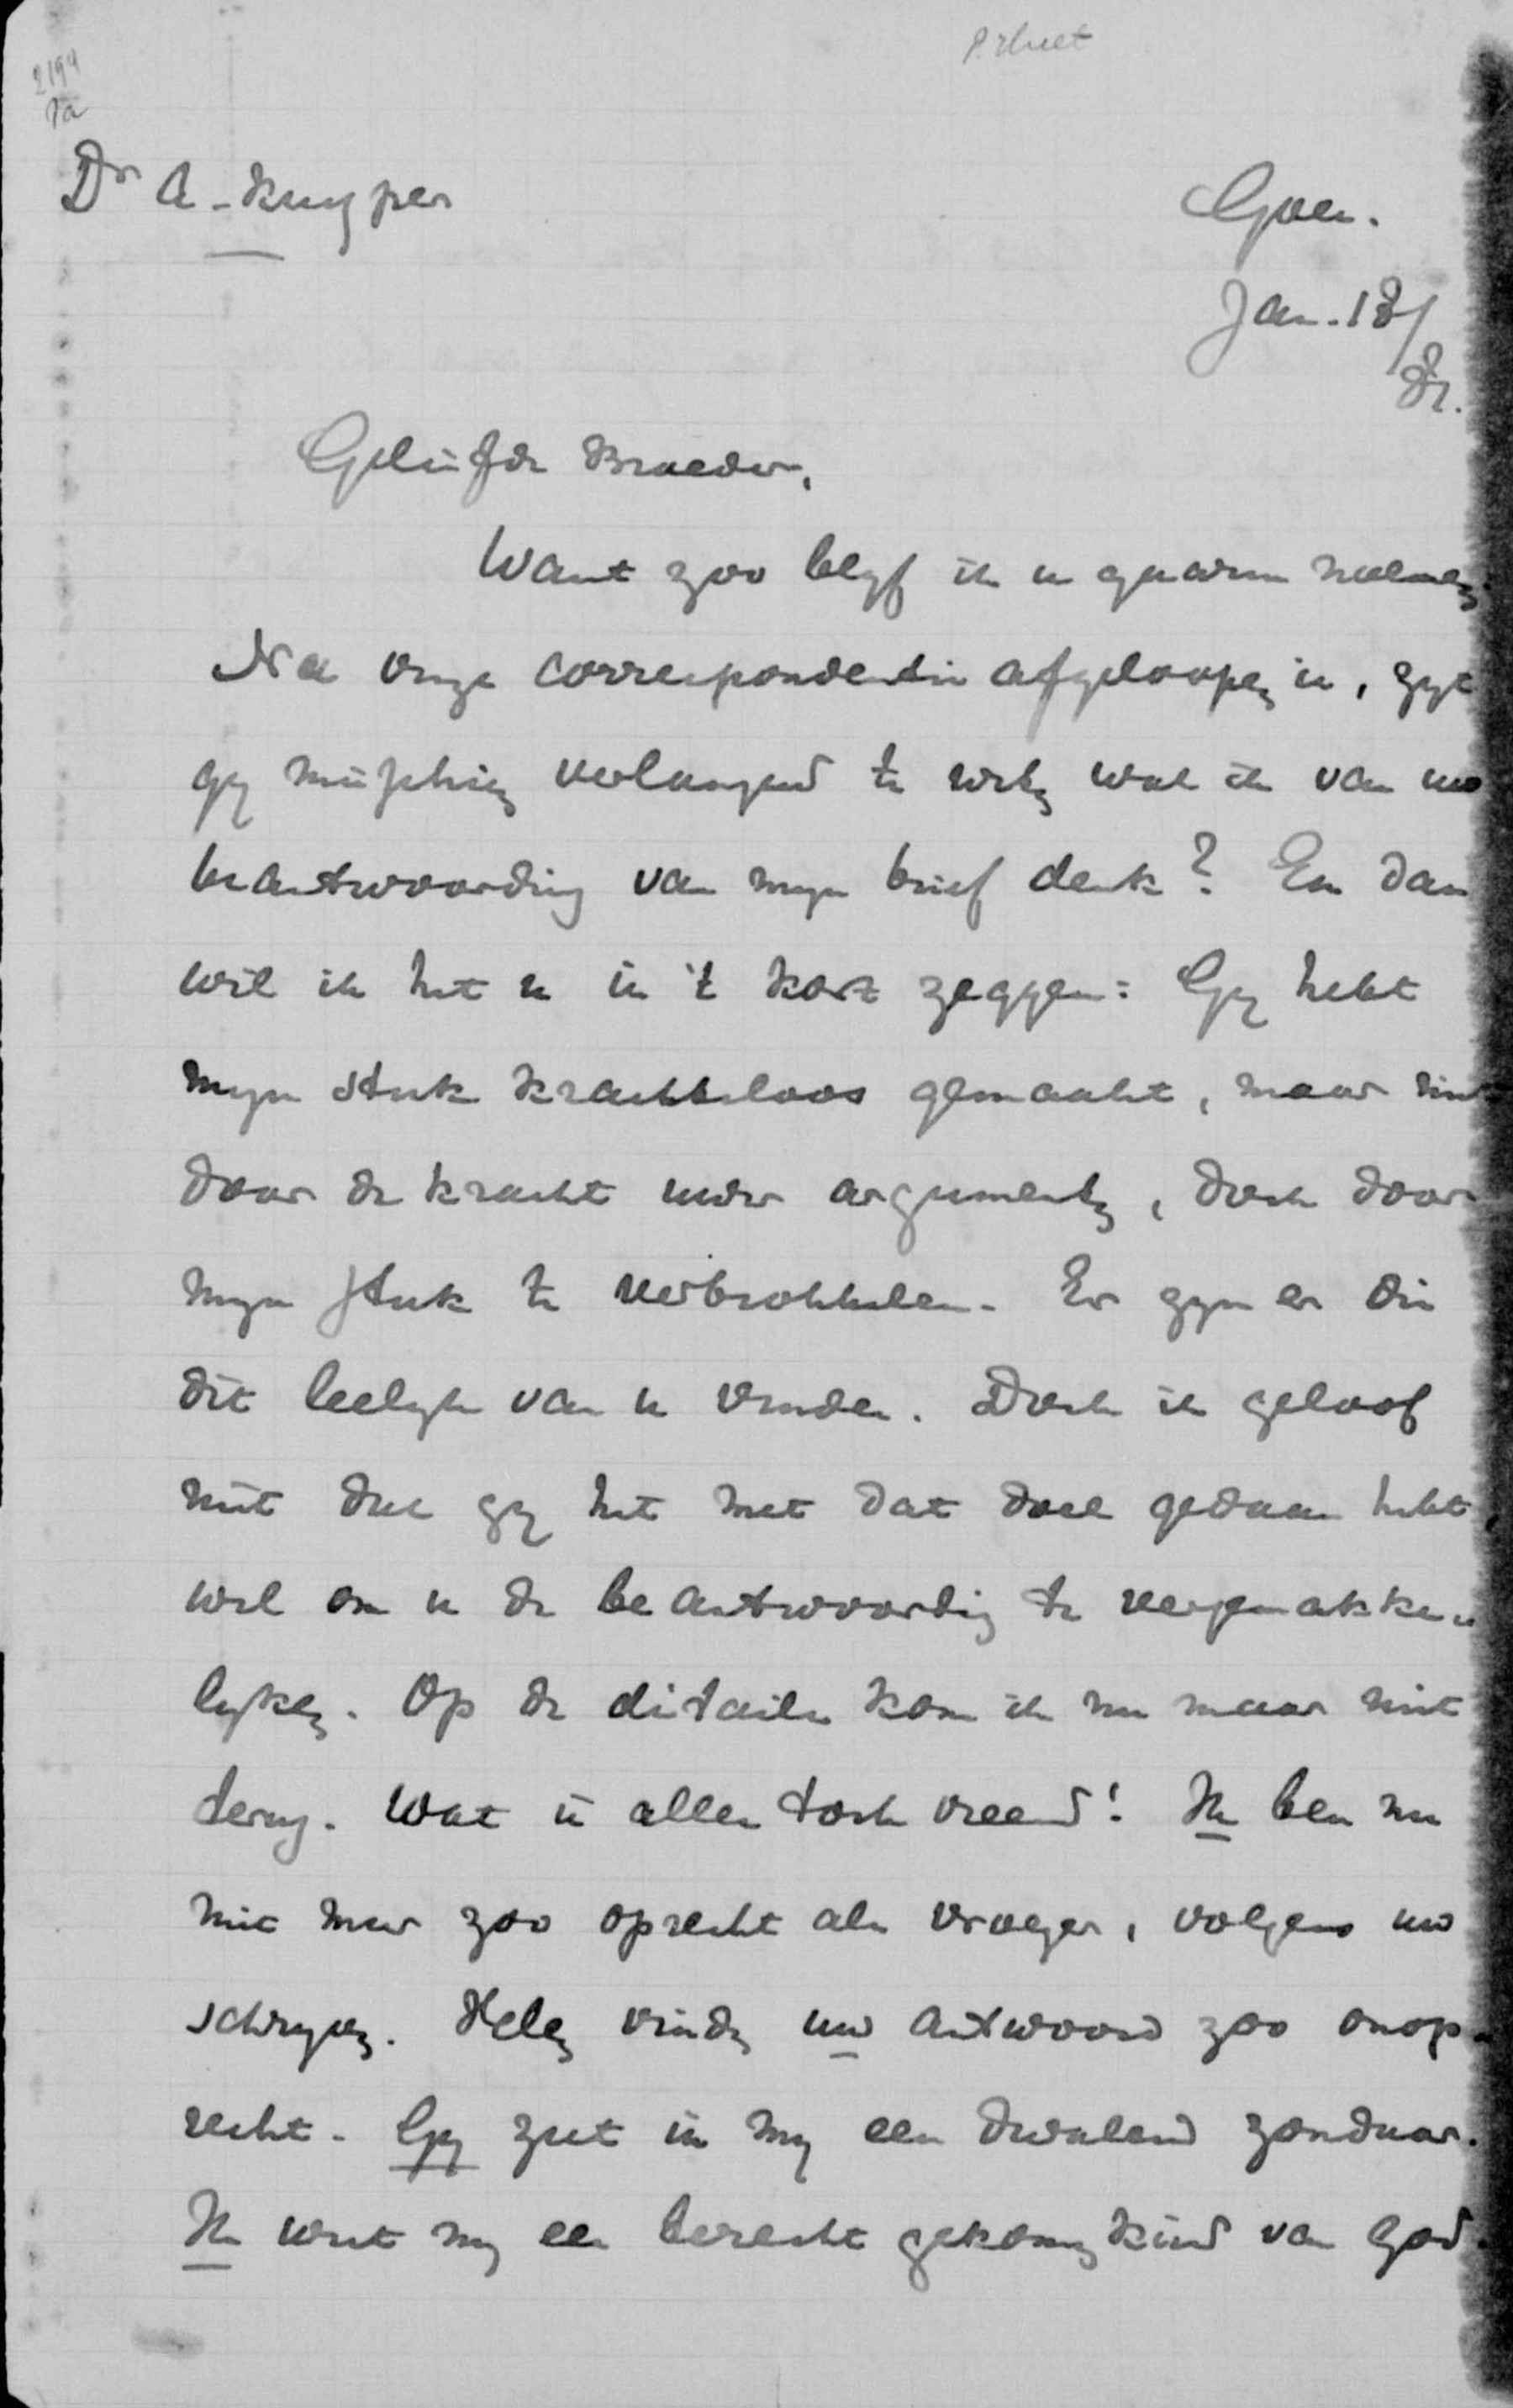 P. Huet
2194
1a
Dr A. Kuyper
Goes.
Jan. 18/
81.
Geliefde Broeder,
Want zoo blyf ik u gaarne noemen.
Nu onze correspondentie afgeloopen is, zyt
gy misschien verlangend te weten wat ik van uw
beantwoording van myn brief denk? En dan
wil ik het u in 't kort zeggen: Gy hebt
myn stuk krachteloos gemaakt, maar niet
door de kracht uwer argumenten, doch door
myn stuk te verbrokkelen. Er zyn er die
dit leelyk van u vinden. Doch ik geloof
niet dat gy het met dat doel gedaan hebt,
wel om u de beantwoording te vergemakke-
lyken. Op de details kom ik nu maar niet
terug. Wat is alles toch vreemd! Ik ben nu
niet meer zoo oprecht als vroeger, volgens uw
schryven. Velen vinden uw antwoord zoo onop-
recht. Gy ziet in my een dwalend zondaar.
Ik weet my een terecht gekomen kind van God.